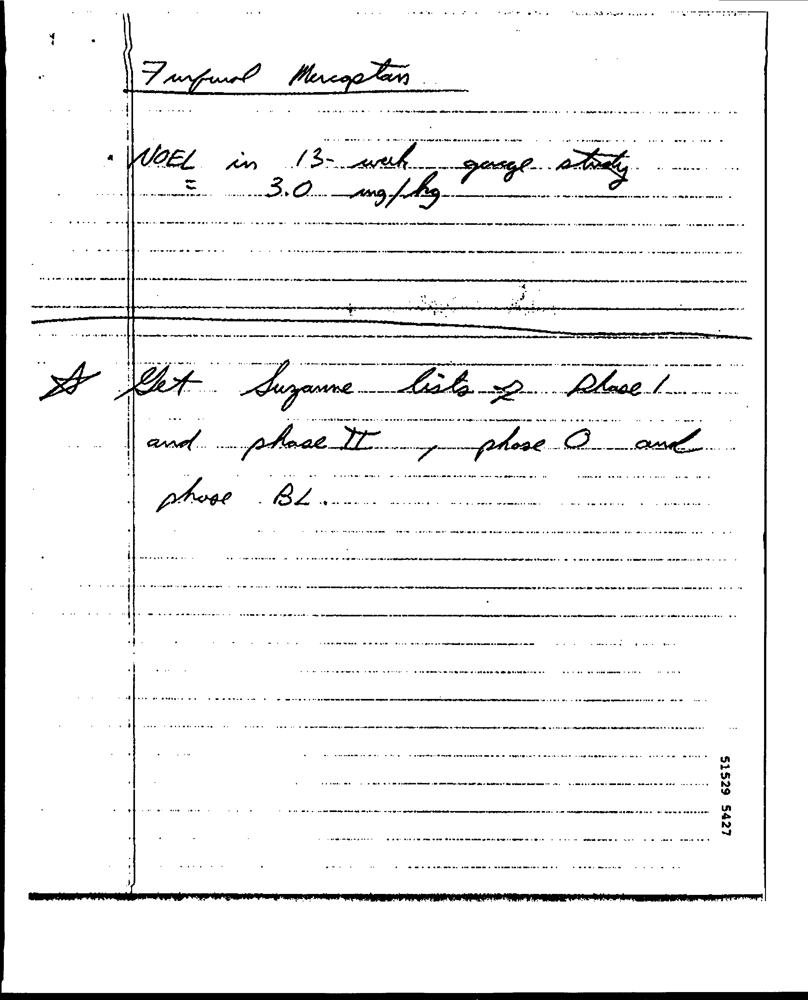 Furfural Mercaptan
• NOEL in 13-week gavage study
= 3.0 mg/kg
☆ Get Suzanne lists Phase 1
and phase II, phase 0 and
phase BL.
51529 5427